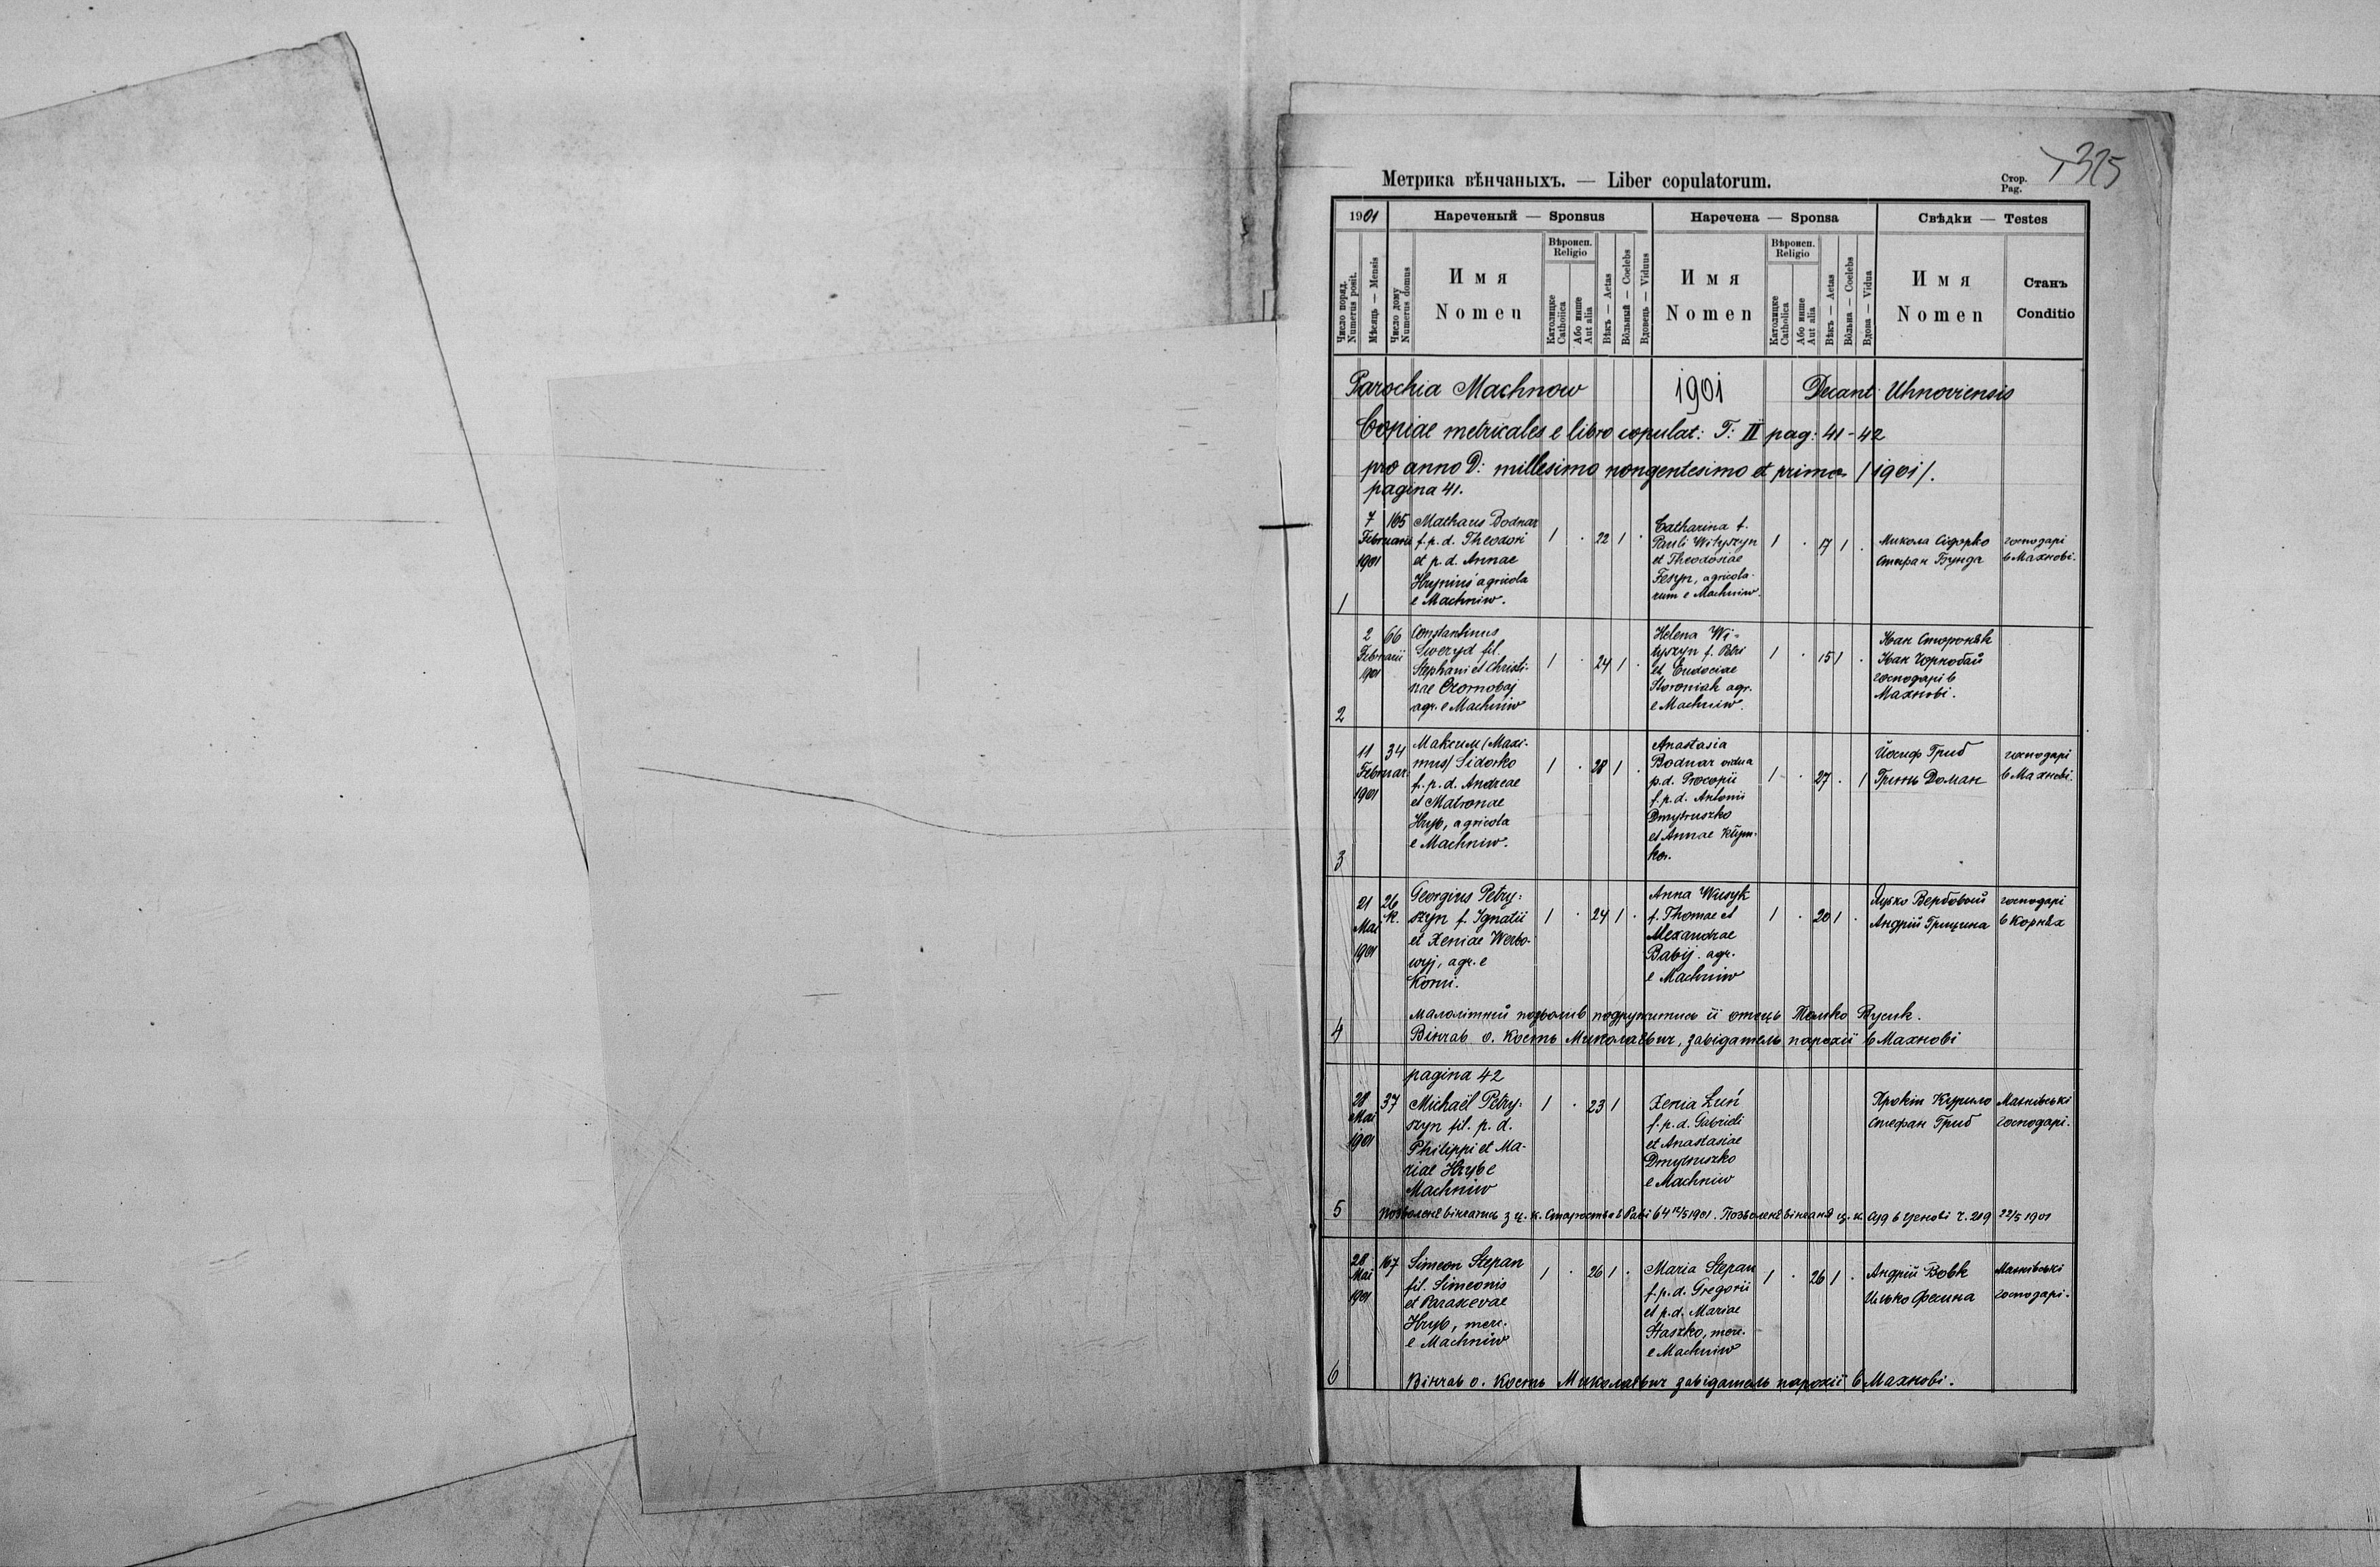 325
Метрика вѣнчаныхъ. — Liber copulatorum.
Стор.
Pag.
1901
Нареченый — Sponsus
Наречена — Sponsa
Свѣдки — Testes
Число поряд.
Numerus posit.
Мѣсяць — Mensis
Число дому
Numerus domus
Имя
Nomen
Вѣроисп.
Religio
Католицке
Catholica
Або инше
Aut alia
Вѣкъ — Aetas
Вôльный — Coelebs
Вдовець — Viduus
Имя
Nomen
Вѣроисп.
Religio
Католицке
Catholica
Або инше
Aut alia
Вѣкъ — Aetas
Вôльна — Coelebs
Вдова — Vidua
Имя
Nomen
Станъ
Conditio
Parochia Machnow 1901 Decant Uhnoviensis
Copiae metricales e libro copulat: T: II pag: 41-42
pro anno D: millesimo nongentesimo et primo /1901/.
pagina 41.
1
7
Februarii
1901
165
Mathaus Bodnar
f. p. d. Theodori
et p. d. Annae
agricola
e Machniw.
1 . 22 1 .
Catharina f.
Pauli Wityszyn
et Theodosiae
Fesyn, agricola-
rum e Machniw.
1 . 17 1 .
Микола Сидорко
Стефан Бунда
господарі
в Махнові.
2
2
Februarii
1901
66
Constantinus
Sweryd fil.
Stephani et Christi-
nae Czornobaj
agr. e Machniw
1 . 24 1 .
Helena Wi-
tyszyn f. Petri
et Eudociae
Storoniak agr.
e Machniw.
1 . 15 1 .
Іван Стороняк
Іван Чорнобай
господарі в
Махнові.
3
11
Februar.
1901
34
Максим /Maxi-
mus/ Sidorko
f. p. d. Andreae
et Matronae
Hryb, agricola
e Machniw.
1 . 28 1 .
Anastasia
Bodnar vidua
p. d. Procopii
f. p. d. Antonii
Dmytruszko
et Annae Klym-
ko.
1 . 27 . 1
Йосиф Гриб
Гринь Доман
господарі
в Махнові.
4
21
Mai
1901
26
K.
Georgius Petry-
szyn f. Ignatii
et Xeniae Werbo-
wyj, agr. e
Korni.
1 . 24 1 .
Anna Wusyk
f. Thomae et
Alexandrae
Babij. agr.
e Machniw
1 . 20 1 .
Луцко Вербовий
Андрій Грицина
господарі
в Корнях
малолітний позволив подружитись її отець Томко Вусик.
Вінчав о. Кость Миколаєвич, завідатель парохії в Махнові
pagina 42
5
28
Mai
1901
37
Michaël Petry-
szyn fil. p. d.
Philippi et Ma-
riae Hryb e
Machniw
1 . 23 1
Xenia Luń
f. p. d. Gabrieli
et Anastasiae
Dmytruszko
e Machniw
Прокіп Курило
Стефан Гриб
Махнівські
господарі.
Позволенє вінчатись з ц. к. Староства в Раві 1901. Позволенє вінчаня ц. к. Суд в Угнові ч. 219 22/5 1901
6
28
Mai
1901
167
Simeon Stepan
fil. Simeonis
et Parascevae
Hryb, merc.
e Machniw
1 . 26 1 .
Maria Stepan
f. p. d. Gregorii
et p. d. Mariae
Staszko, merc.
e Machniw
1 . 26 1 .
Андрій Вовк
Илько Фесина
Махнівські
господарі.
Вінчав о. Кость Миколаєвич завідатель парохії в Махнові.